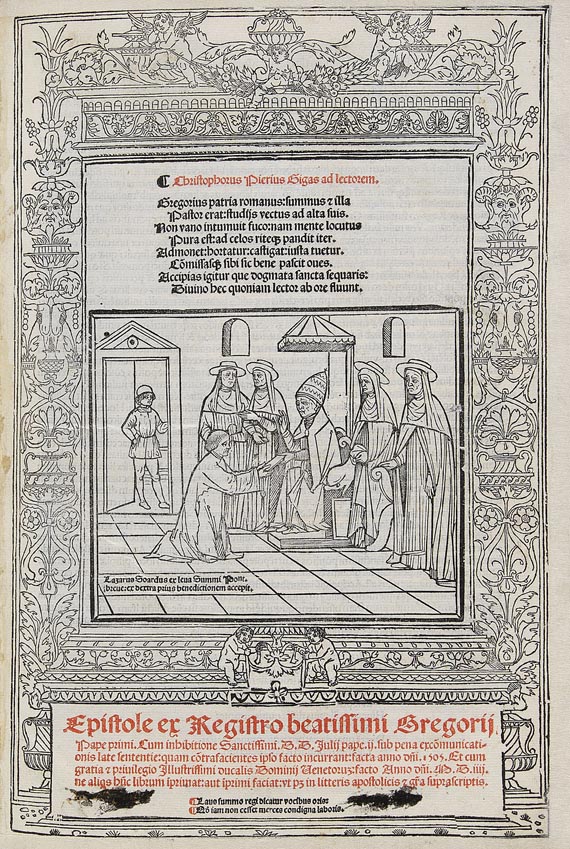 ¶ Christophorus Pierius Gigas ad lectorem.
Gregorius patria romanus: summus ⁊ illa
Pastor erat: studijs vectus ad alta suis.
Non vano intumuit fuco: nam mente locutus
Pura est: ad celos riteqꝫ pandit iter.
Admonet: hortatur: castigat: iusta tuetur.
Cōmissasqꝫ sibi sic bene pascit oues.
Accipias igitur que dogmata sancta sequaris:
Diuino hec quoniam lector ab ore fluunt.
Lazarus Soardus ex leua Summi Pont.
breue: ex dextra prius benedictionem accepit.
Epistole ex Registro beatissimi Gregorij
Pape primi. Cum inhibitione Sanctissimi. D. D. Julij pape. ij. sub pena excōmunicati-
onis late sententie: quam cōtrafacientes ipso facto incurrant: facta anno dñi. 1505. Et cum
gratia ⁊ priuilegio Illustrissimi ducalis Dominij Uenetorum: facto Anno dñi. M. D. iiij.
ne aliqs hūc librum īprimat: aut īprimi faciat: vt pꝫ in litteris apostolicis ⁊ gr̄a suprascriptis.
¶ Laus summo regi dicatur vocibus oris:
¶ Nō iam non esset merces condigna laboris.